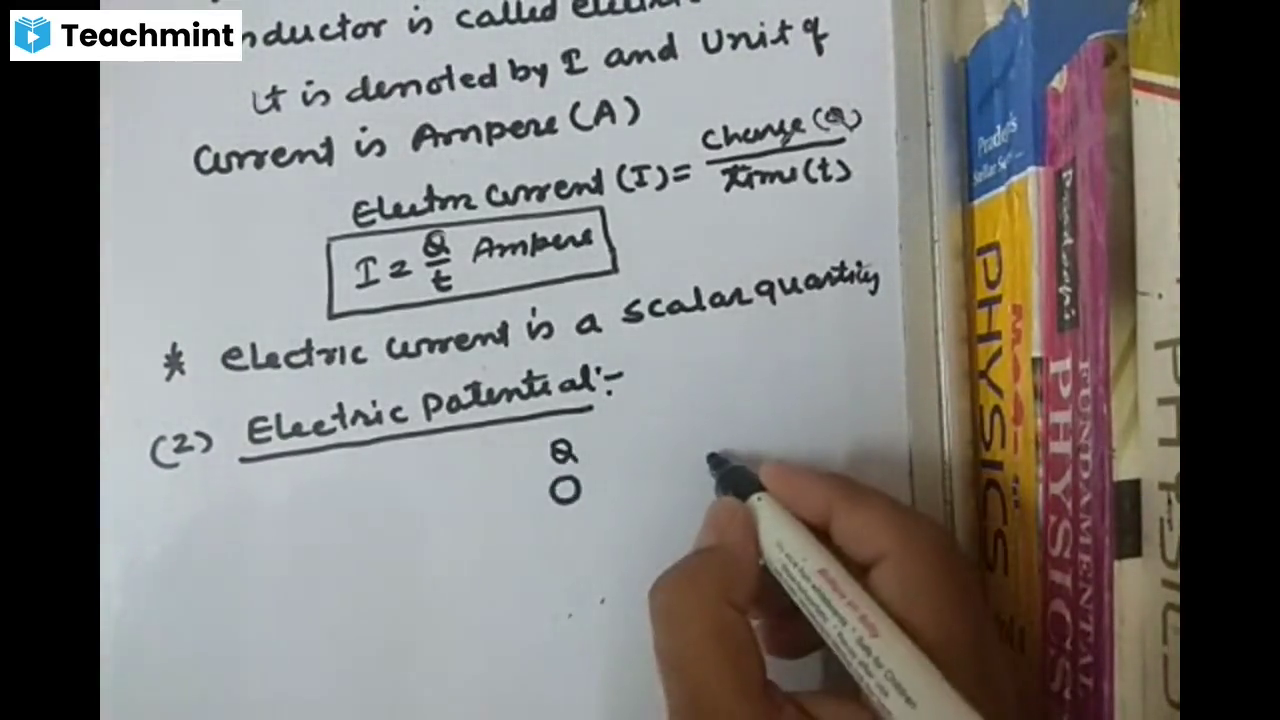 Teachmint
nductor is called elect
It is denoted by I and Unit of
current is Ampere (A)
Electric current (I) = Charge (Q) / time (t)
I = Q/t Ampere
* electric current is a scalar quantity
(2) Electric Potential :-
Q
Pradeep's
PHYSICS
Pradeep's
FUNDAMENTAL
PHYSICS
PHYSICS